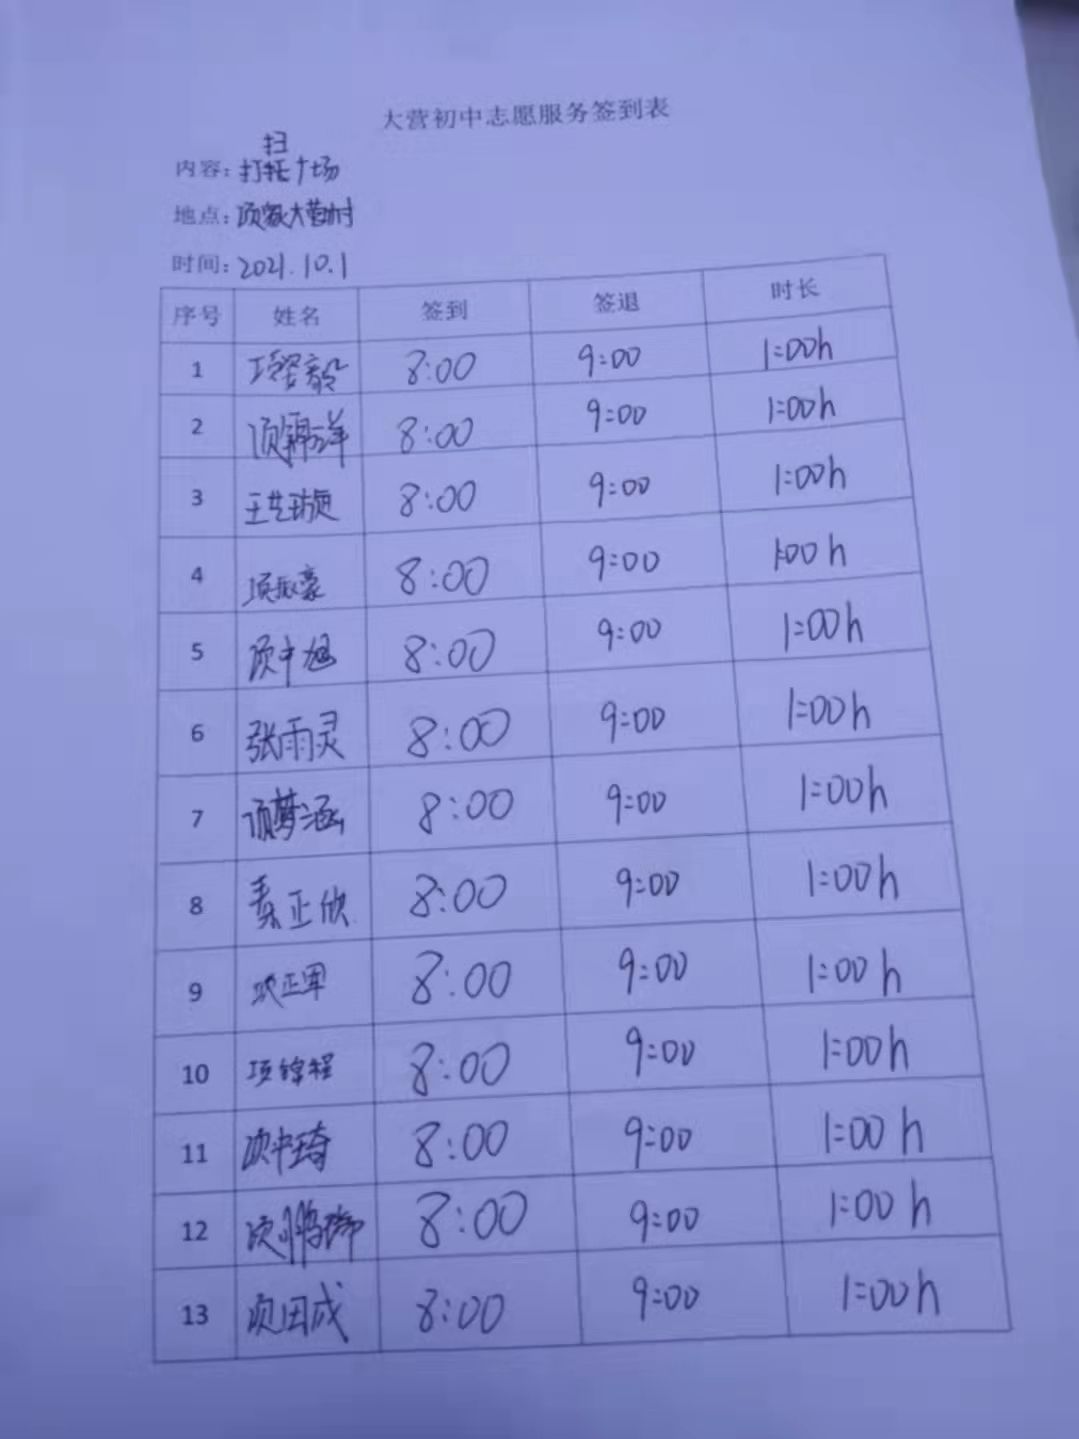 大营初中志愿服务签到表
内容: 打扫广场
地点: 项家大营村
时间: 2021.10.1
序号 姓名 签到 签退 时长
1 8:00 9:00 1:00h
2 项锦洋 8:00 9:00 1:00h
3 王艺璇 8:00 9:00 1:00h
4 项振豪 8:00 9:00 1:00h
5 项中旭 8:00 9:00 1:00h
6 张雨灵 8:00 9:00 1:00h
7 项梦涵 8:00 9:00 1:00h
8 秦正欣 8:00 9:00 1:00h
9 项正军 8:00 9:00 1:00h
10 项锦程 8:00 9:00 1:00h
11 项中琦 8:00 9:00 1:00h
12 项鹏 8:00 9:00 1:00h
13 项田成 8:00 9:00 1:00h